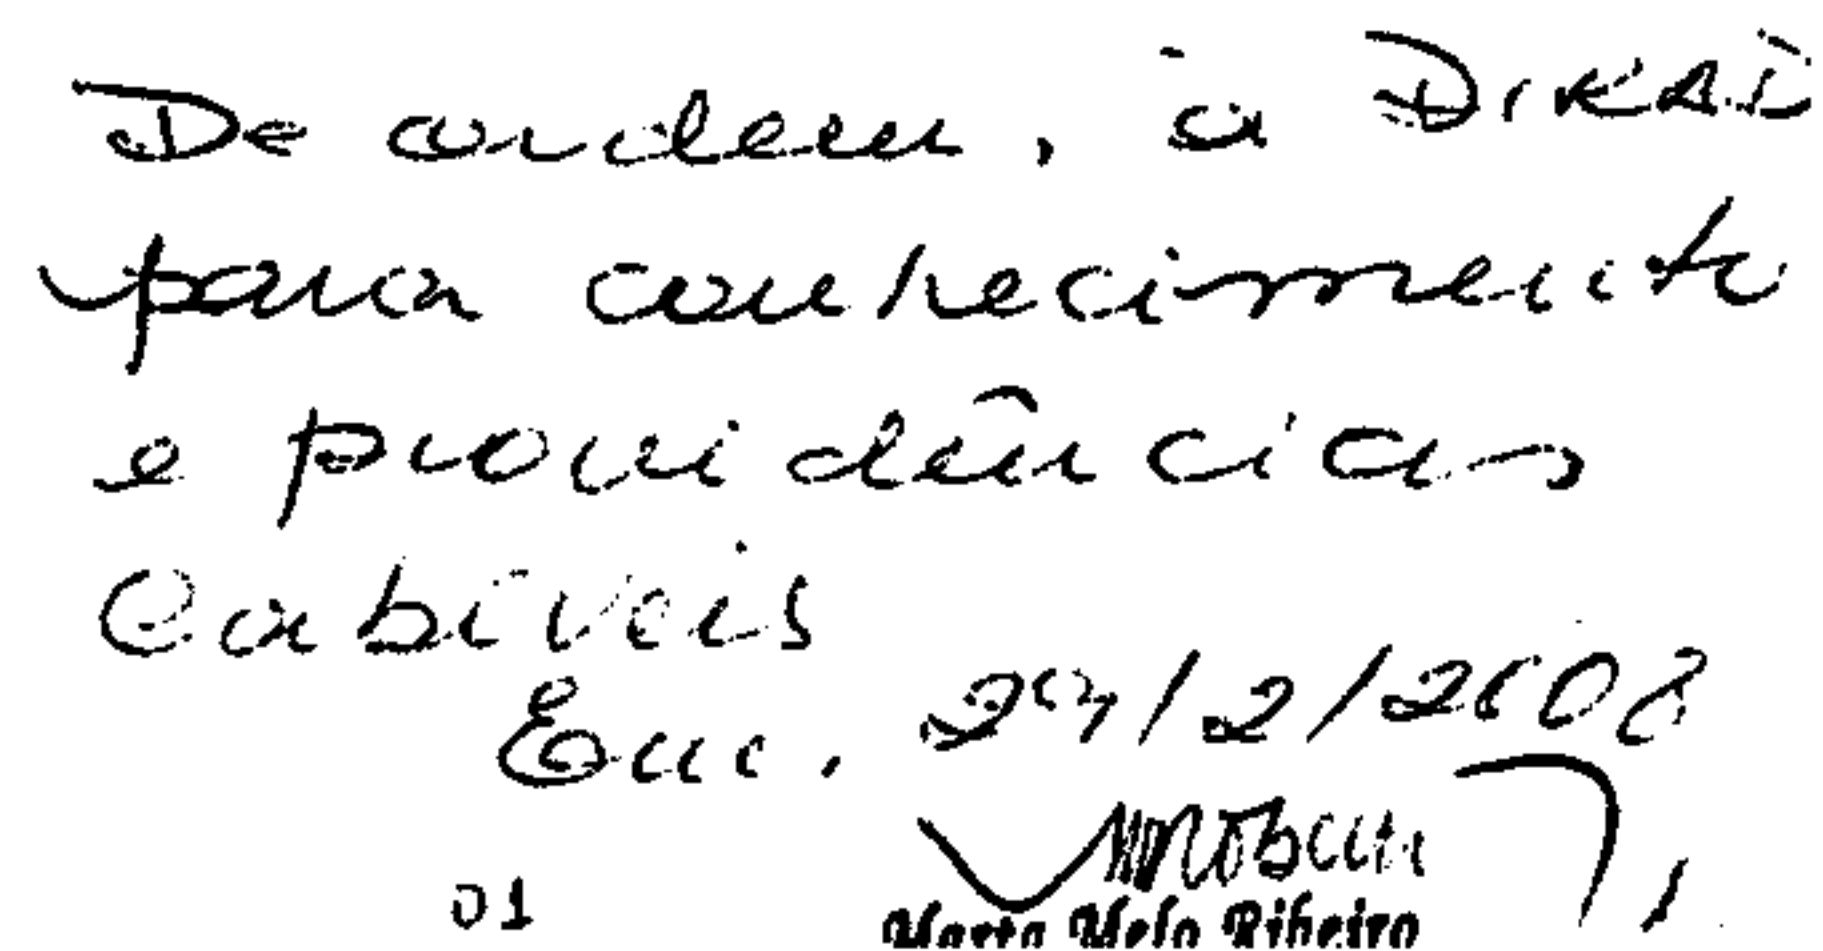 De ordem, à DIRAI
para conhecimento
e providências
Cabíveis
Em, 29/2/2008
01
Marta Melo Ribeiro